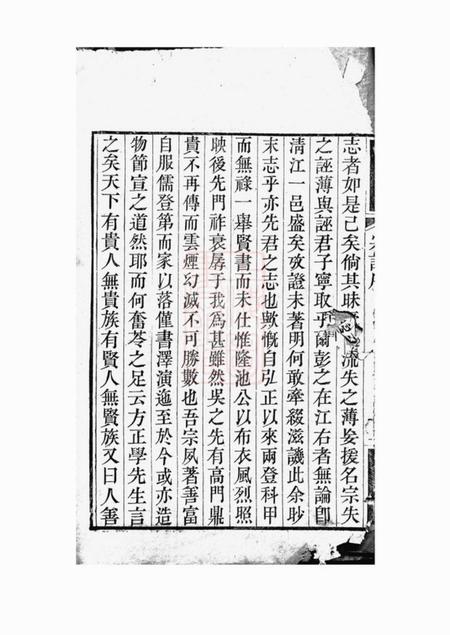 志者如是已矣倘其昧 流失之薄妄援名宗失
之誣薄與誣君子寧取乎爾彭之在江右者無論卽
淸江一邑盛矣攷證未著明何敢牽綴滋譏此余眇
末志乎亦先君之志也歟慨自弘正以來兩登科甲
而無祿一舉賢書而未仕惟隆池公以布衣風烈照
映後先門祚衰孱于我爲甚雖然吳之先有高門鼎
貴不再傳而雲煙幻滅不可勝數也吾宗夙著善富
自服儒登第而家以落僅書澤演迤至於今或亦造
物節宣之道然耶而何奮苓之足云方正學先生言
之矣天下有貴人無貴族有賢人無賢族又曰人善